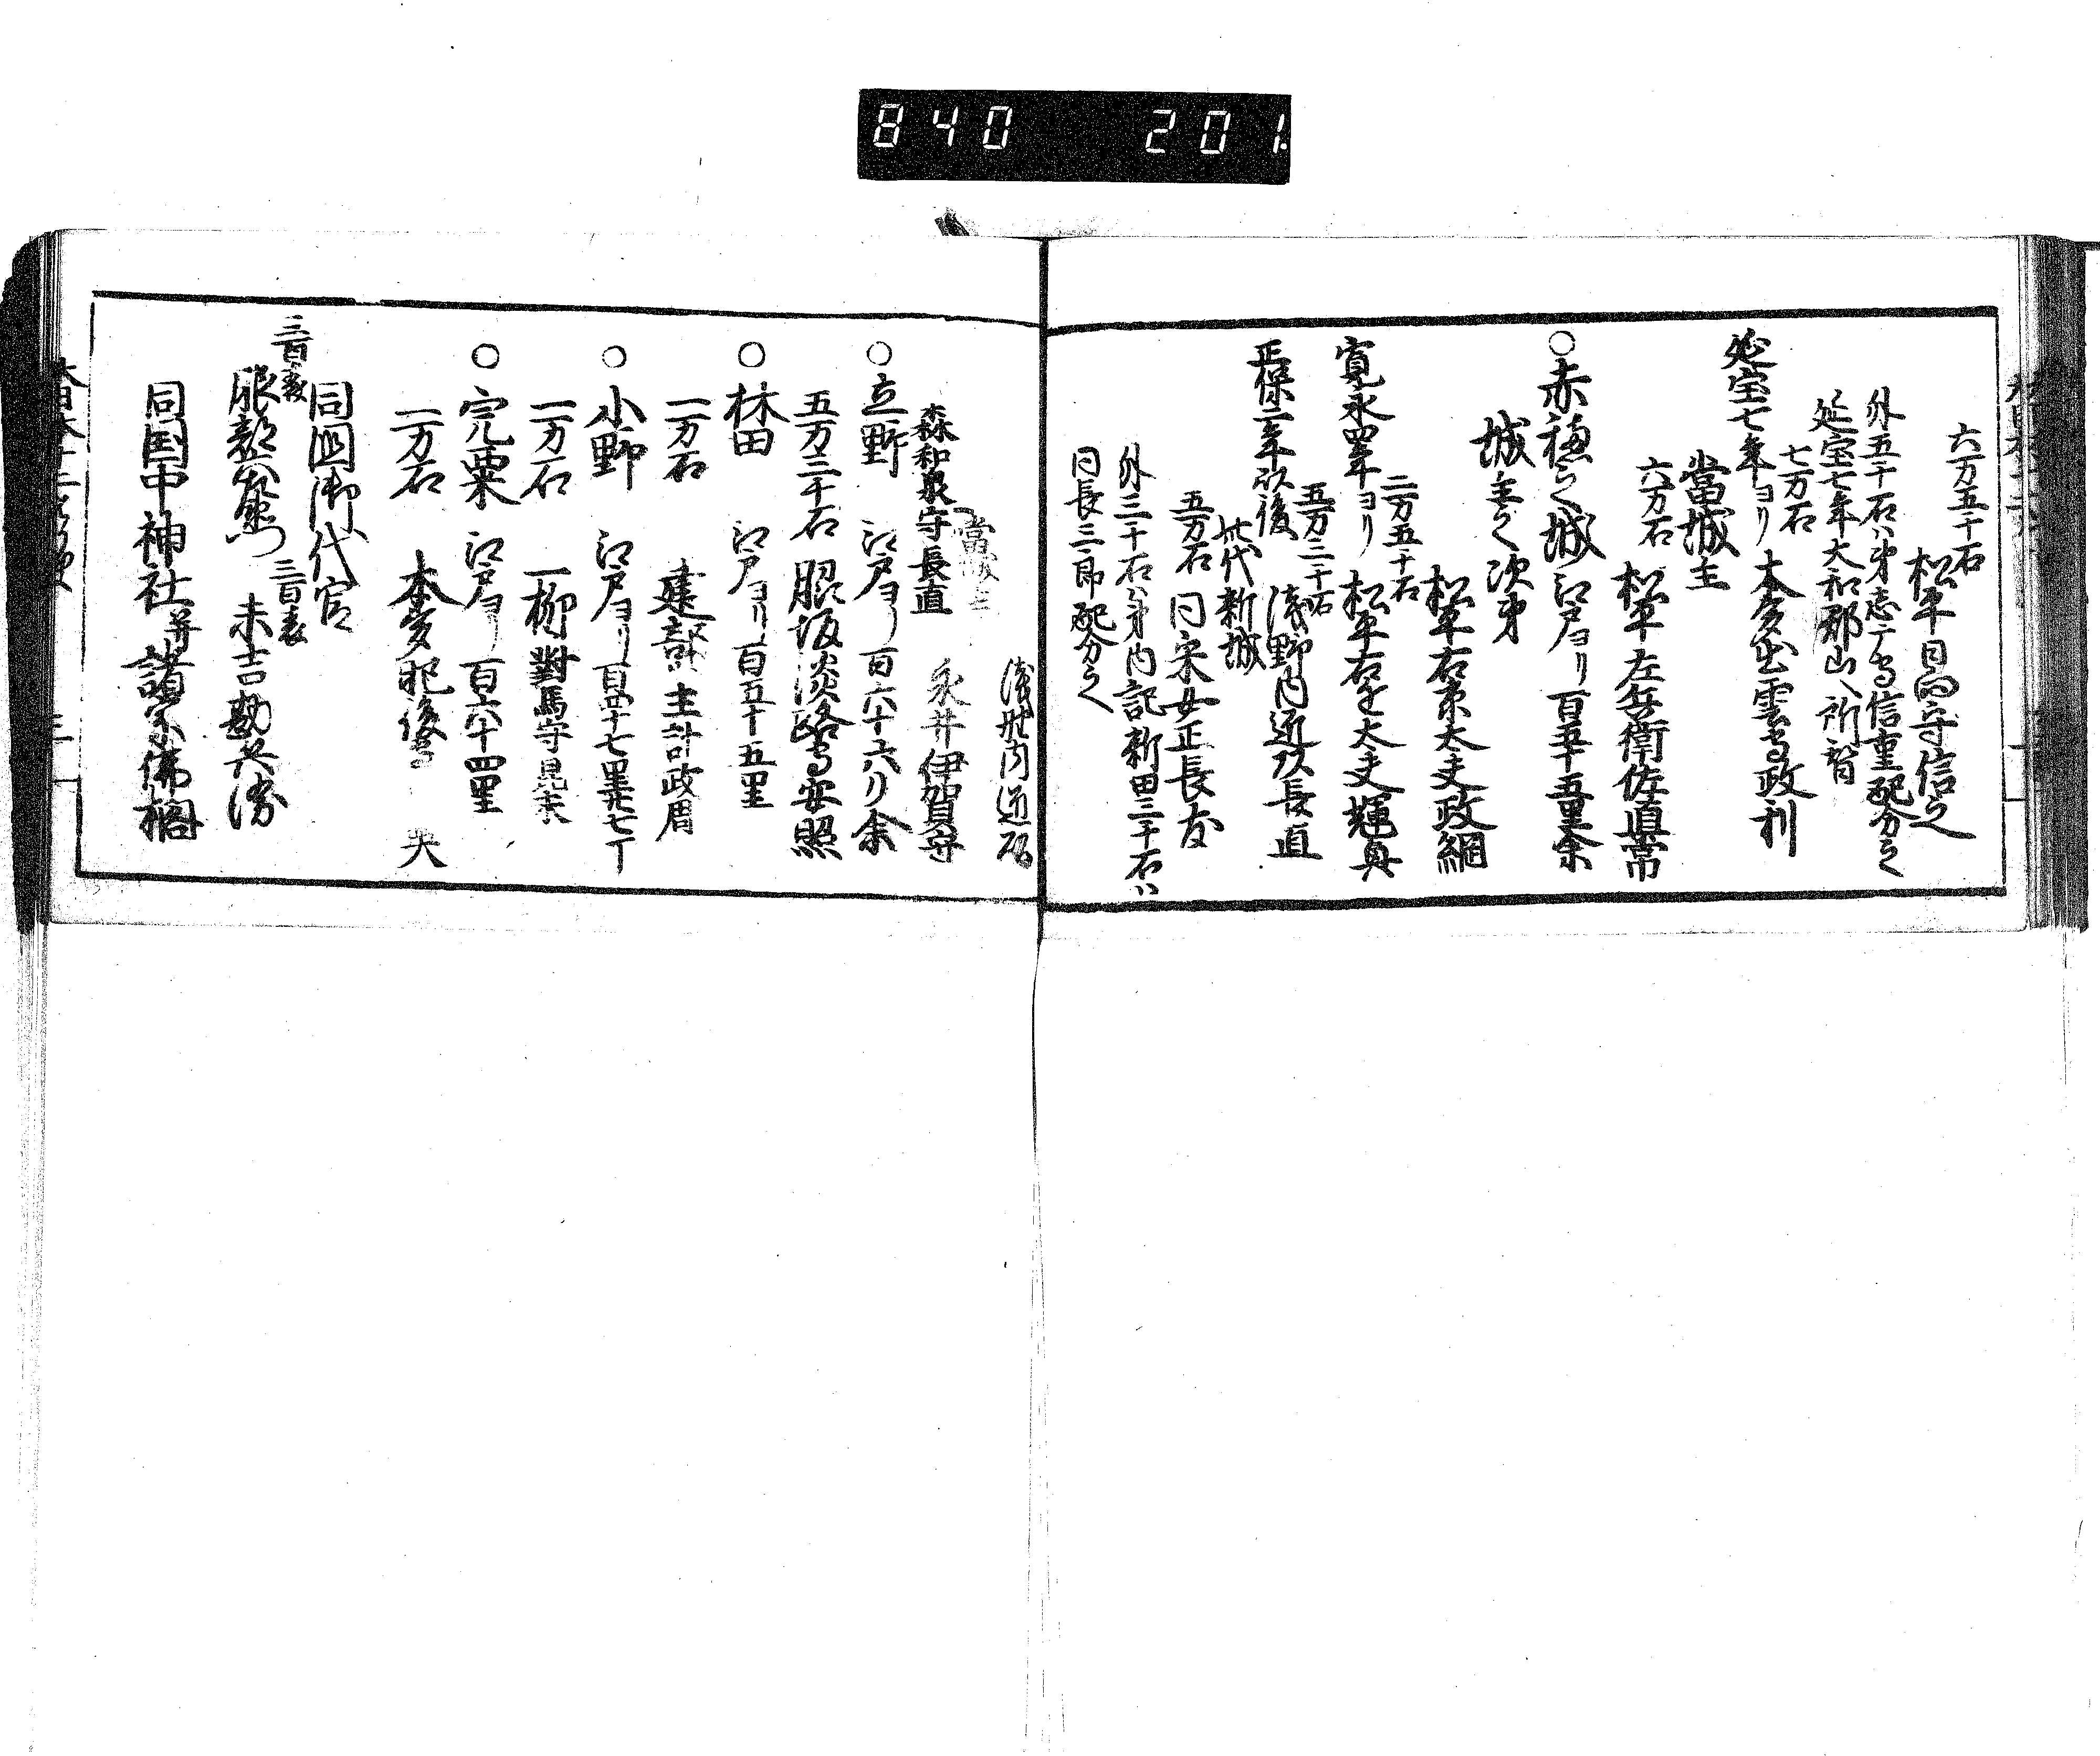 840 201
六万五千石
松平日向守信之
外五千石ハ弟志广守信重配分之
延宝七年大和郡山ヘ所替
七万石
延宝七年ヨリ 本多出雲守政利
當城主
六万石
松平左兵衛佐直常
○赤穂之城 江戸ヨリ百五十五里余
城主之次第
松平右京太夫政綱
二万五千石
寛永四年ヨリ 松平右近大夫輝興
五万三千石
正保二年以後 浅野内匠頭長直
此代新城
五万石 同采女正長友
外三千石ハ弟内記新田三千石ハ
同長三郎配分之
浅野内匠頭
當城主 永井伊賀守
森和泉守長直
○立野 江戸ヨリ百六十六リ余
五万三千石 脇坂淡路守安照
○林田 江戸ヨリ百五十五里
一万石 建部主計政周
○小野 江戸ヨリ百四十七里廿七丁
一万石 一柳對馬守末
○宍粟 江戸ヨリ百六十四里
一万石 本多肥後守 央
同國御代官
三百表
服部六
三百表
末吉勘兵衛
同国中神社并諸宗佛閣